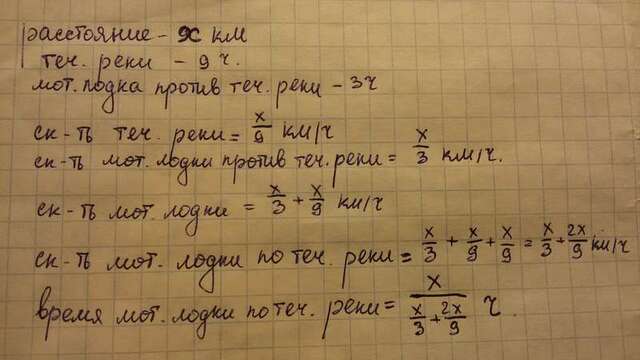 расстояние - x км
теч. реки - 9 ч.
мот. лодка против теч. реки - 3ч
ск-ть теч. реки = x/9 км/ч
ск-ть мот. лодки против теч. реки = x/3 км/ч.
ск-ть мот. лодки = x/3 + x/9 км/ч
ск-ть мот. лодки по теч. реки = x/3 + x/9 + x/9 = x/3 + 2x/9 км/ч
время мот. лодки по теч. реки = x/(x/3 + 2x/9) ч.